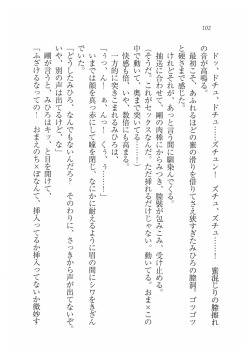 102
ドッ、ドチュ、ドチュ……ズチュン！　ズチュ、ズチュ……！　蜜混じりの膣擦れ
の音が高鳴る。
最初こそ、あふれるほどの蜜の滑りを借りてさえ狭すぎたみひろの膣洞。ゴツゴツ
と硬さまで感じた。
けれどそれが、けっと言う間に馴染んでくる。
抽送に合わせて、剛の肉棒にからみつき、膣襞が包みこみ、受け止める。
（そうだ、これがセックスなんだ。ただ挿れるだけじゃない、動いてる。おま×この
中で動いて、奥まで突いてる……！）
快感も倍に、いや、数倍にも高まる。
一方的に突きこまれるみひろは、
「うっ、ん！　ぁ、んっ！　くう、う……！」
いまでは顔を真っ赤にして瞳を閉じ、なにかに耐えるように眉の間にシワをきざん
「どうしたみひろ、なんでもないんだろ？　そのわりに、さっきから声が出てないぞ。
いや、別の声は出てるけど、な」
剛が言うと、みひろはキッ、と目を開けて、
「ふざけるなっての！　おまえのち×ぽなんて、挿入ってるか挿入ってないか微妙す